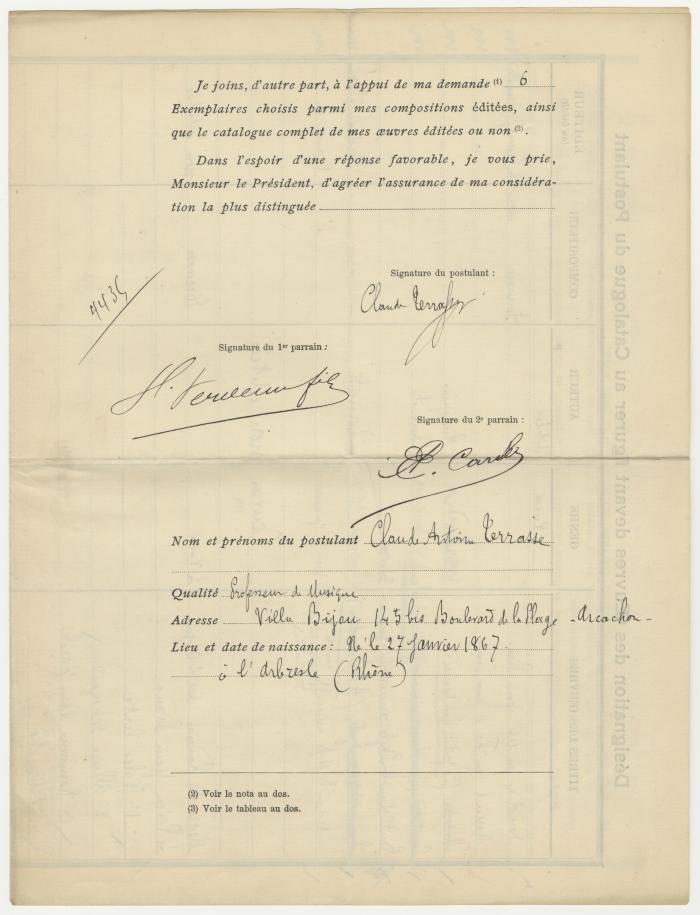 Je joins, d'autre part, à l'appui de ma demande (1) 6
Exemplaires choisis parmi mes compositions éditées, ainsi
que le catalogue complet de mes œuvres éditées ou non (2).
Dans l'espoir d'une réponse favorable, je vous prie,
Monsieur le Président, d'agréer l'assurance de ma considéra-
tion la plus distinguée
Signature du postulant :
Claude Terrasse
4435
Signature du 1er parrain :
fils
Signature du 2e parrain :
Nom et prénoms du postulant Claude Antoine Terrasse
Qualité Professeur de Musique
Adresse Villa Bijou 145 bis Boulevard de la Plage - Arcachon -
Lieu et date de naissance : Né le 27 Janvier 1867.
à l'Arbresle (Rhône)
(2) Voir le nota au dos.
(3) Voir le tableau au dos.
Désignation des œuvres devant figurer au Catalogue du Postulant
TITRES DES ŒUVRES
GENRE
AUTEUR
COMPOSITEUR
ÉDITEUR